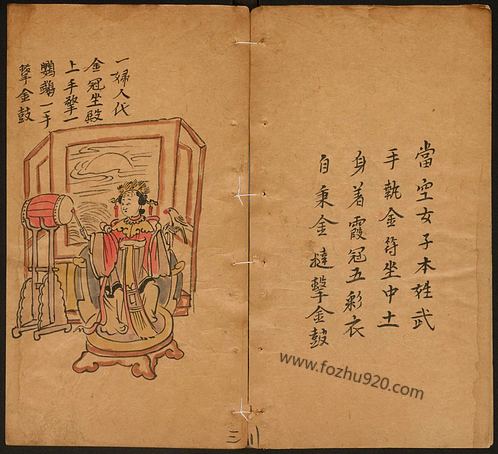 當空女子本姓武
手執金符坐中土
身着霞冠五彩衣
自秉金撻擊金鼓
一婦人代
金冠坐殿
上手擎一
鸚鵡一手
擊金鼓
三
www.fozhu920.com